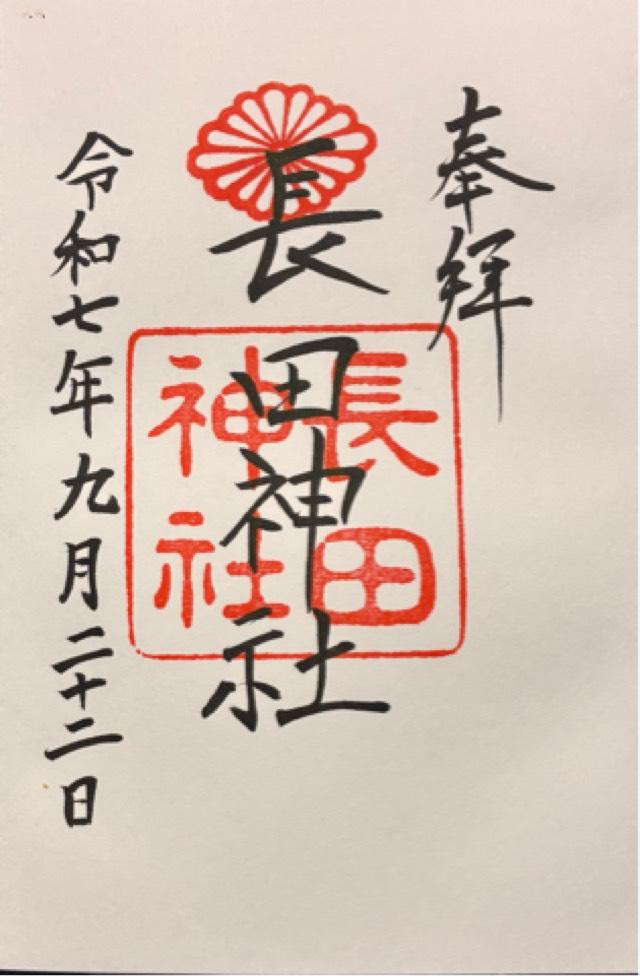 奉拝
長田神社
長田神社
令和七年九月二十二日